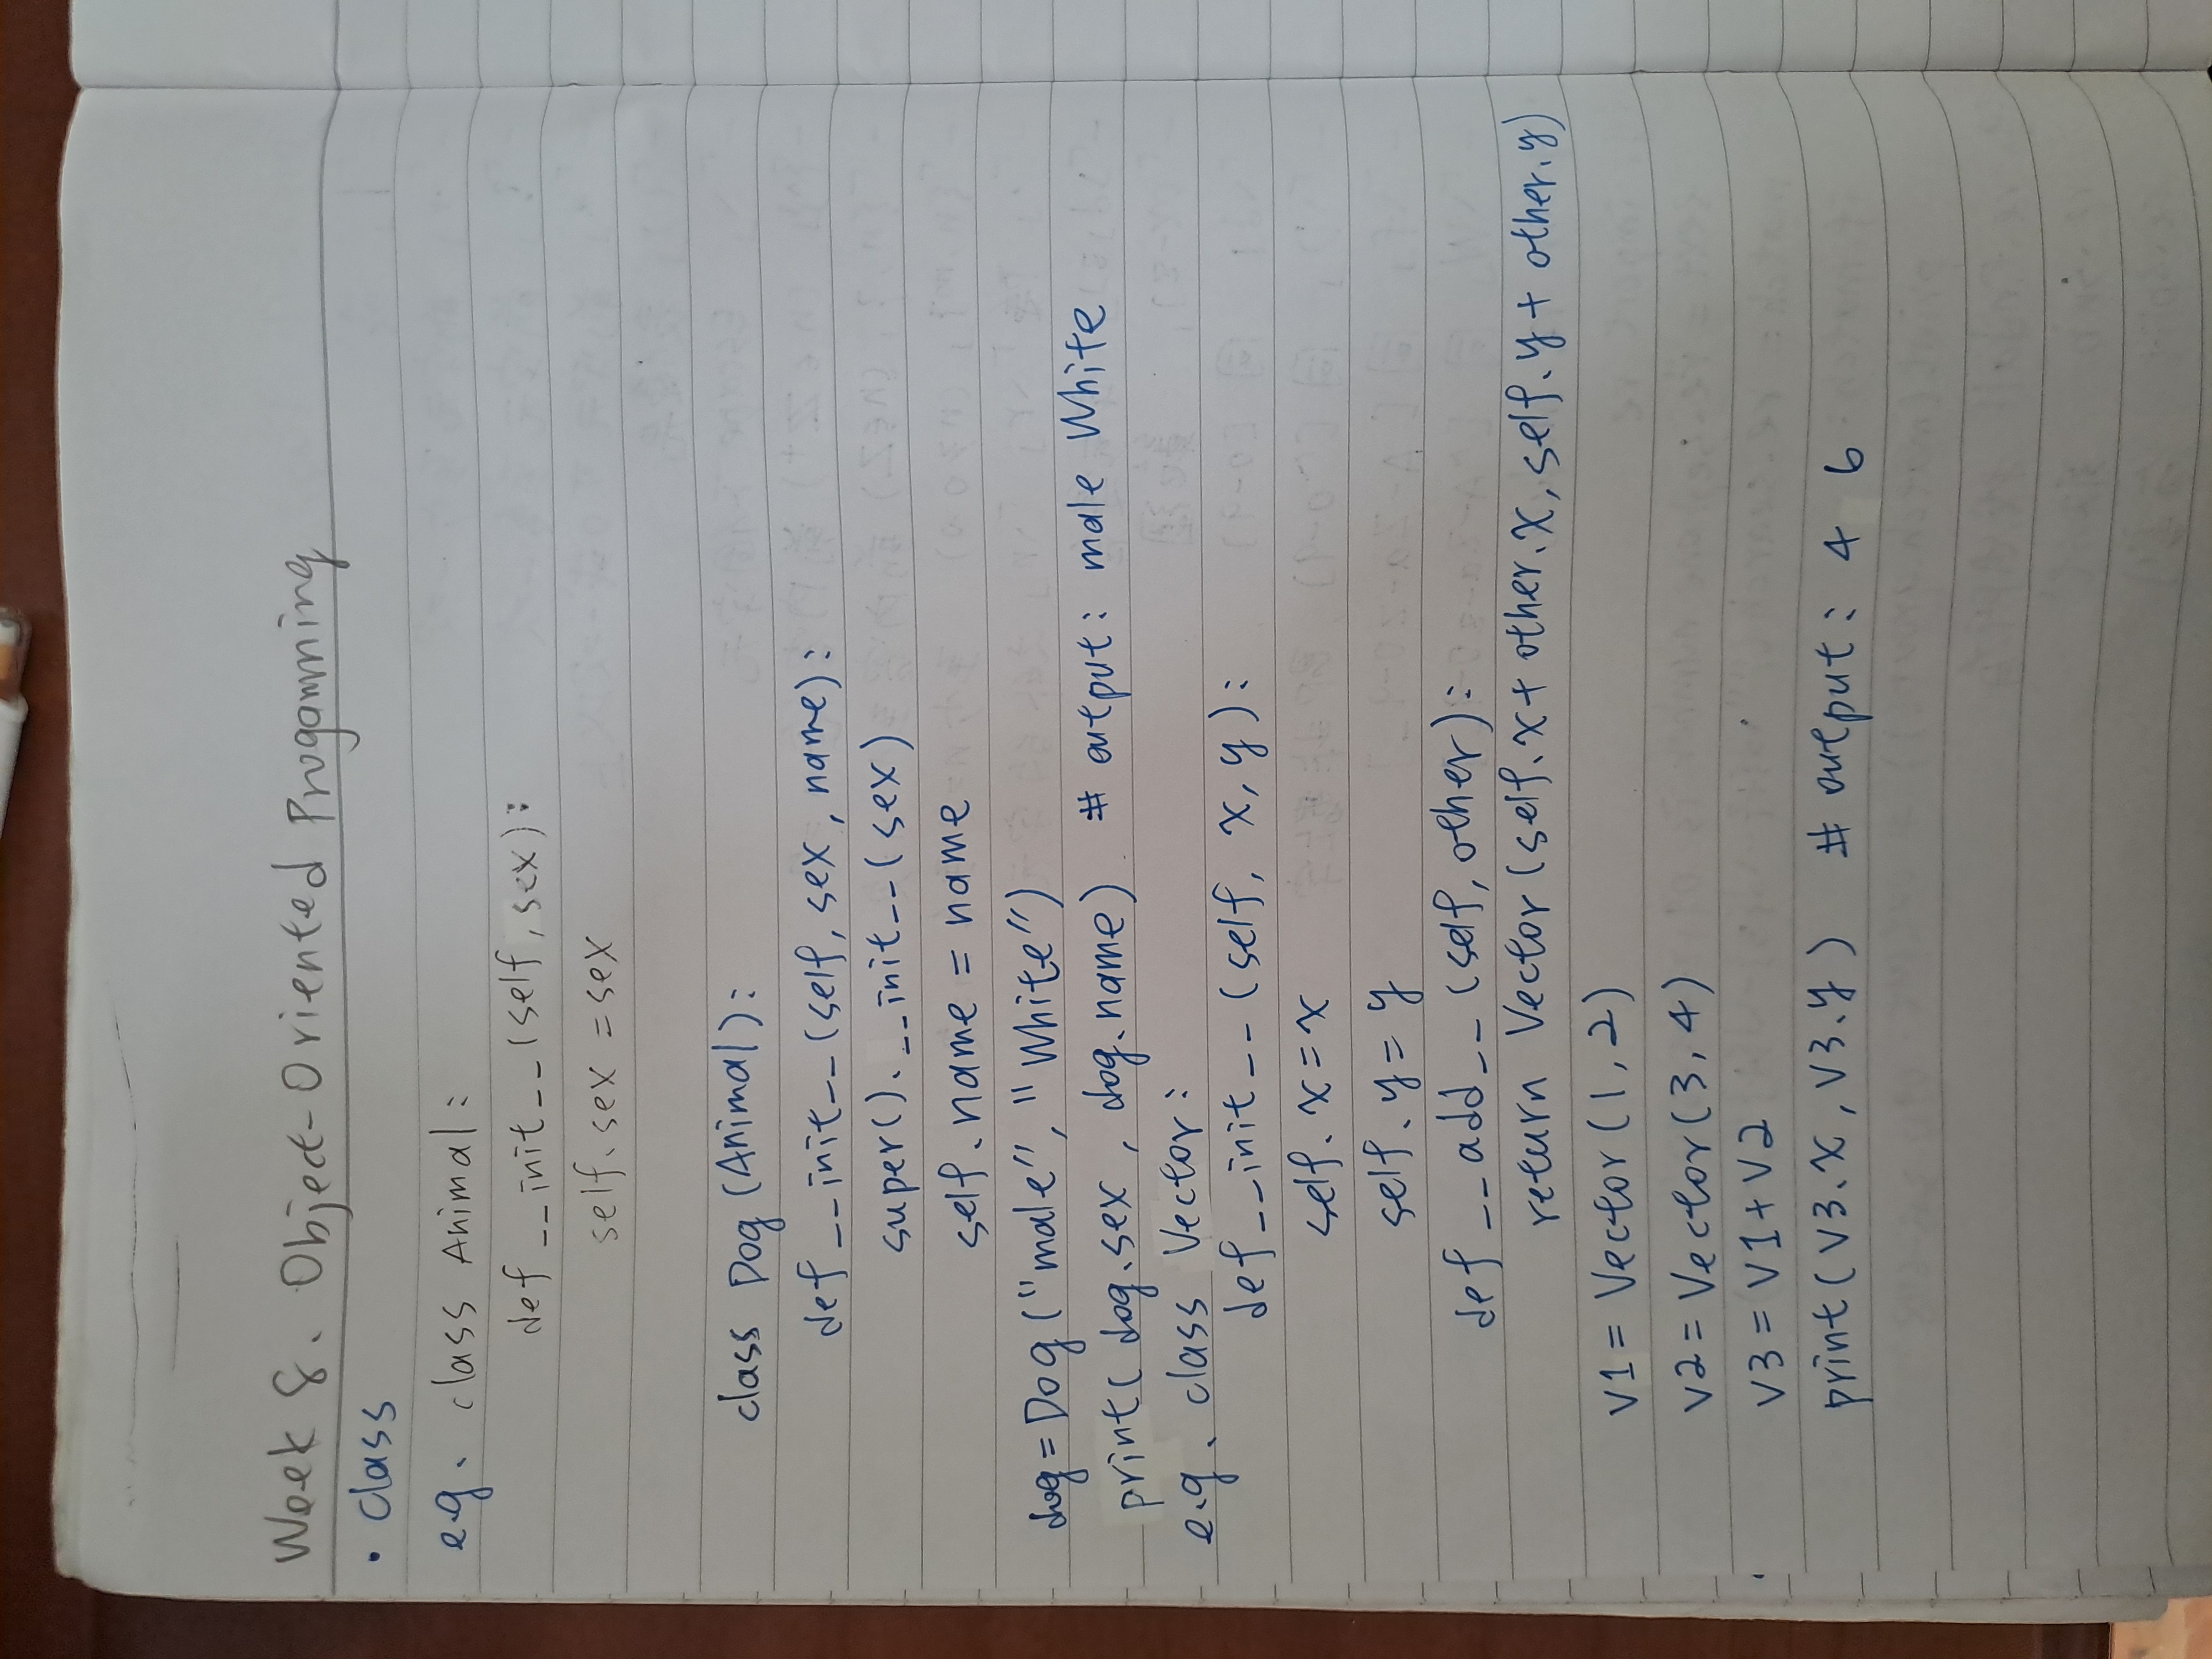 Week 8. Object-Oriented Progamming
• class
e.g. class Animal:
def __init__(self, sex):
self.sex = sex
class Dog (Animal):
def __init__(self, sex, name):
super().__init__(sex)
self.name = name
dog = Dog ("male", "White")
print( dog.sex , dog.name) # output: male White
e.g. class Vector:
def __init__ (self, x, y):
self.x = x
self.y = y
def __add__ (self, other):
return Vector (self.x + other.x, self.y + other.y)
v1 = Vector (1, 2)
v2 = Vector (3, 4)
v3 = v1 + v2
print (v3.x, v3.y) # output: 4 6